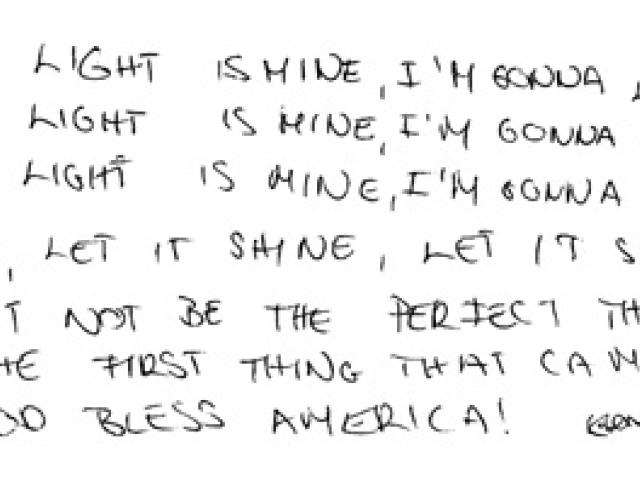 LIGHT IS MINE, I'M GONNA
LIGHT IS MINE, I'M GONNA
LIGHT IS MINE, I'M GONNA
, LET IT SHINE, LET IT S
T NOT BE THE PERFECT TH
HE FIRST THING THAT CAM
OD BLESS AMERICA!